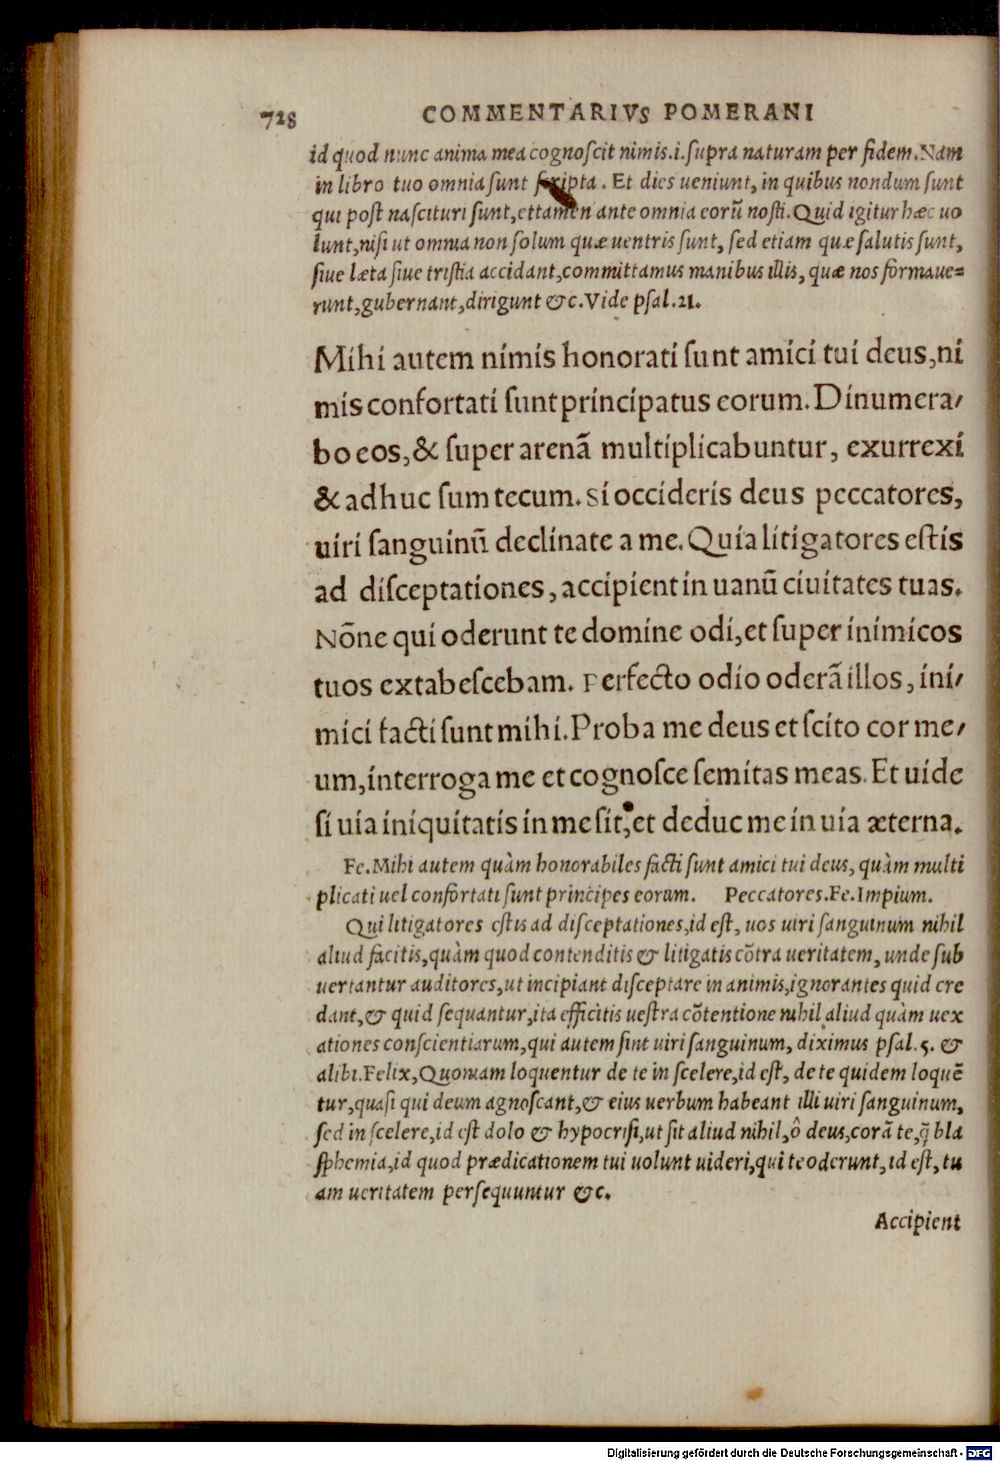 728 COMMENTARIVS POMERANI
id quod nunc anima mea cognoſcit nimis.i.ſupra naturam per fidem.Nam
in libro tuo omnia ſunt ſcripta. Et dies ueniunt, in quibus nondum ſunt
qui poſt naſcituri ſunt,ettamen ante omnia eorũ noſti.Quid igitur hæc uo
lunt,niſi ut omnia non ſolum quæ uentris ſunt, ſed etiam quæ ſalutis ſunt,
ſiue læta ſiue triſtia accidant,committamus manibus illis, quæ nos formaue=
runt,gubernant,dirigunt &c.Vide pſal.21.
Mihi autem nimis honorati ſunt amici tui deus,ni
mis confortati ſunt principatus eorum.Dinumera/
bo eos,& ſuper arenã multiplicabuntur, exurrexi
& adhuc ſum tecum.Si occideris deus peccatores,
uiri ſanguinũ declinate a me.Quia litigatores eſtis
ad diſceptationes, accipient in uanũ ciuitates tuas.
Nõne qui oderunt te domine odi,et ſuper inimicos
tuos extabeſcebam. Perfecto odio oderã illos, ini/
mici facti ſunt mihi.Proba me deus et ſcito cor me/
um,interroga me et cognoſce ſemitas meas. Et uide
ſi uia iniquitatis in me ſit,et deduc me in uia æterna.
Fe.Mihi autem quàm honorabiles facti ſunt amici tui deus, quàm multi
plicati uel confortati ſunt principes eorum. Peccatores.Fe.Impium.
Qui litigatores eſtis ad diſceptationes,id eſt, uos uiri ſanguinum nihil
aliud facitis,quàm quod contenditis & litigatis cõtra ueritatem, unde ſub
uertantur auditores,ut incipiant diſceptare in animis,ignorantes quid cre
dant,& quid ſequantur,ita efficitis ueſtra cõtentione nihil aliud quàm uex
ationes conſcientiarum,qui autem ſint uiri ſanguinum, diximus pſal.5. &
alibi.Felix,Quoniam loquentur de te in ſcelere,id eſt, de te quidem loquẽ
tur,quaſi qui deum agnoſcant,& eius uerbum habeant illi uiri ſanguinum,
ſed in ſcelere,id eſt dolo & hypocriſi,ut ſit aliud nihil,ô deus,corã te,q̃ bla
ſphemia,id quod prædicationem tui uolunt uideri,qui te oderunt,id eſt, tu
am ueritatem perſequuntur &c.
Accipient
Digitalisierung gefördert durch die Deutsche Forschungsgemeinschaft - DFG